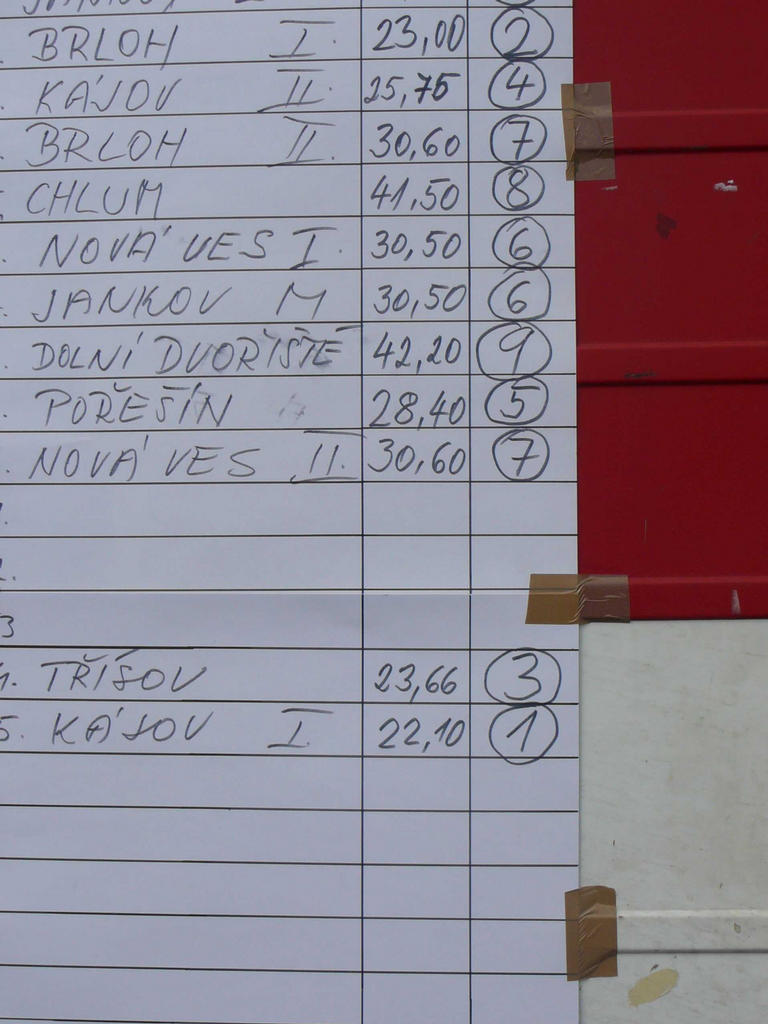 BRLOH I. 23,00 2
KÁJOV II. 25,75 4
BRLOH II. 30,60 7
CHLUM 41,50 8
NOVÁ VES I. 30,50 6
JANKOV M 30,50 6
DOLNÍ DVOŘIŠTĚ 42,20 9
POŘEŠÍN 28,40 5
NOVÁ VES II. 30,60 7
3
TŘÍSOV 23,66 3
5. KÁJOV I. 22,10 1